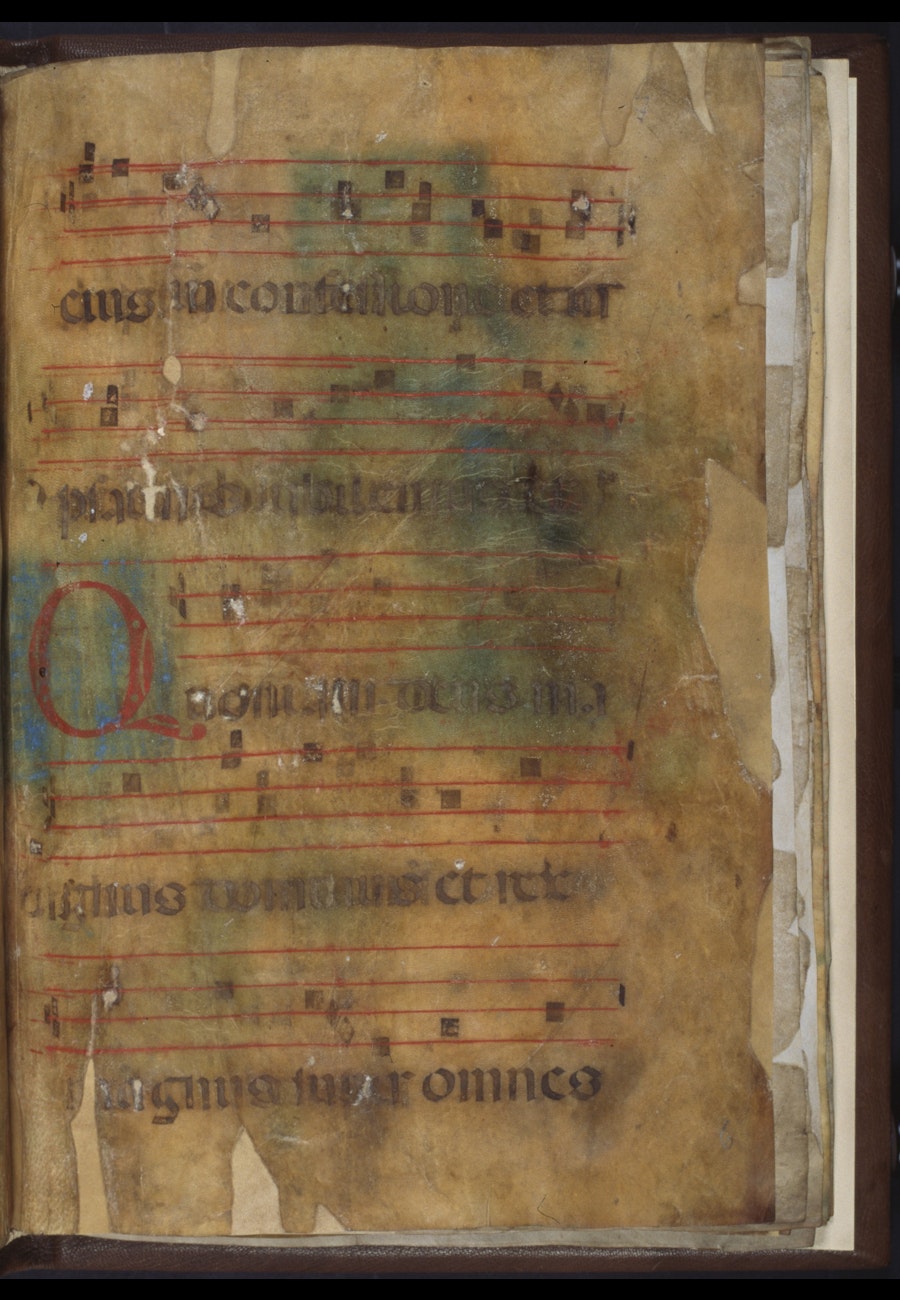 eius in confessione et in
psalmis iubilemus
Quoniam deus ma
gnus dominus et rex
magnus super omnes